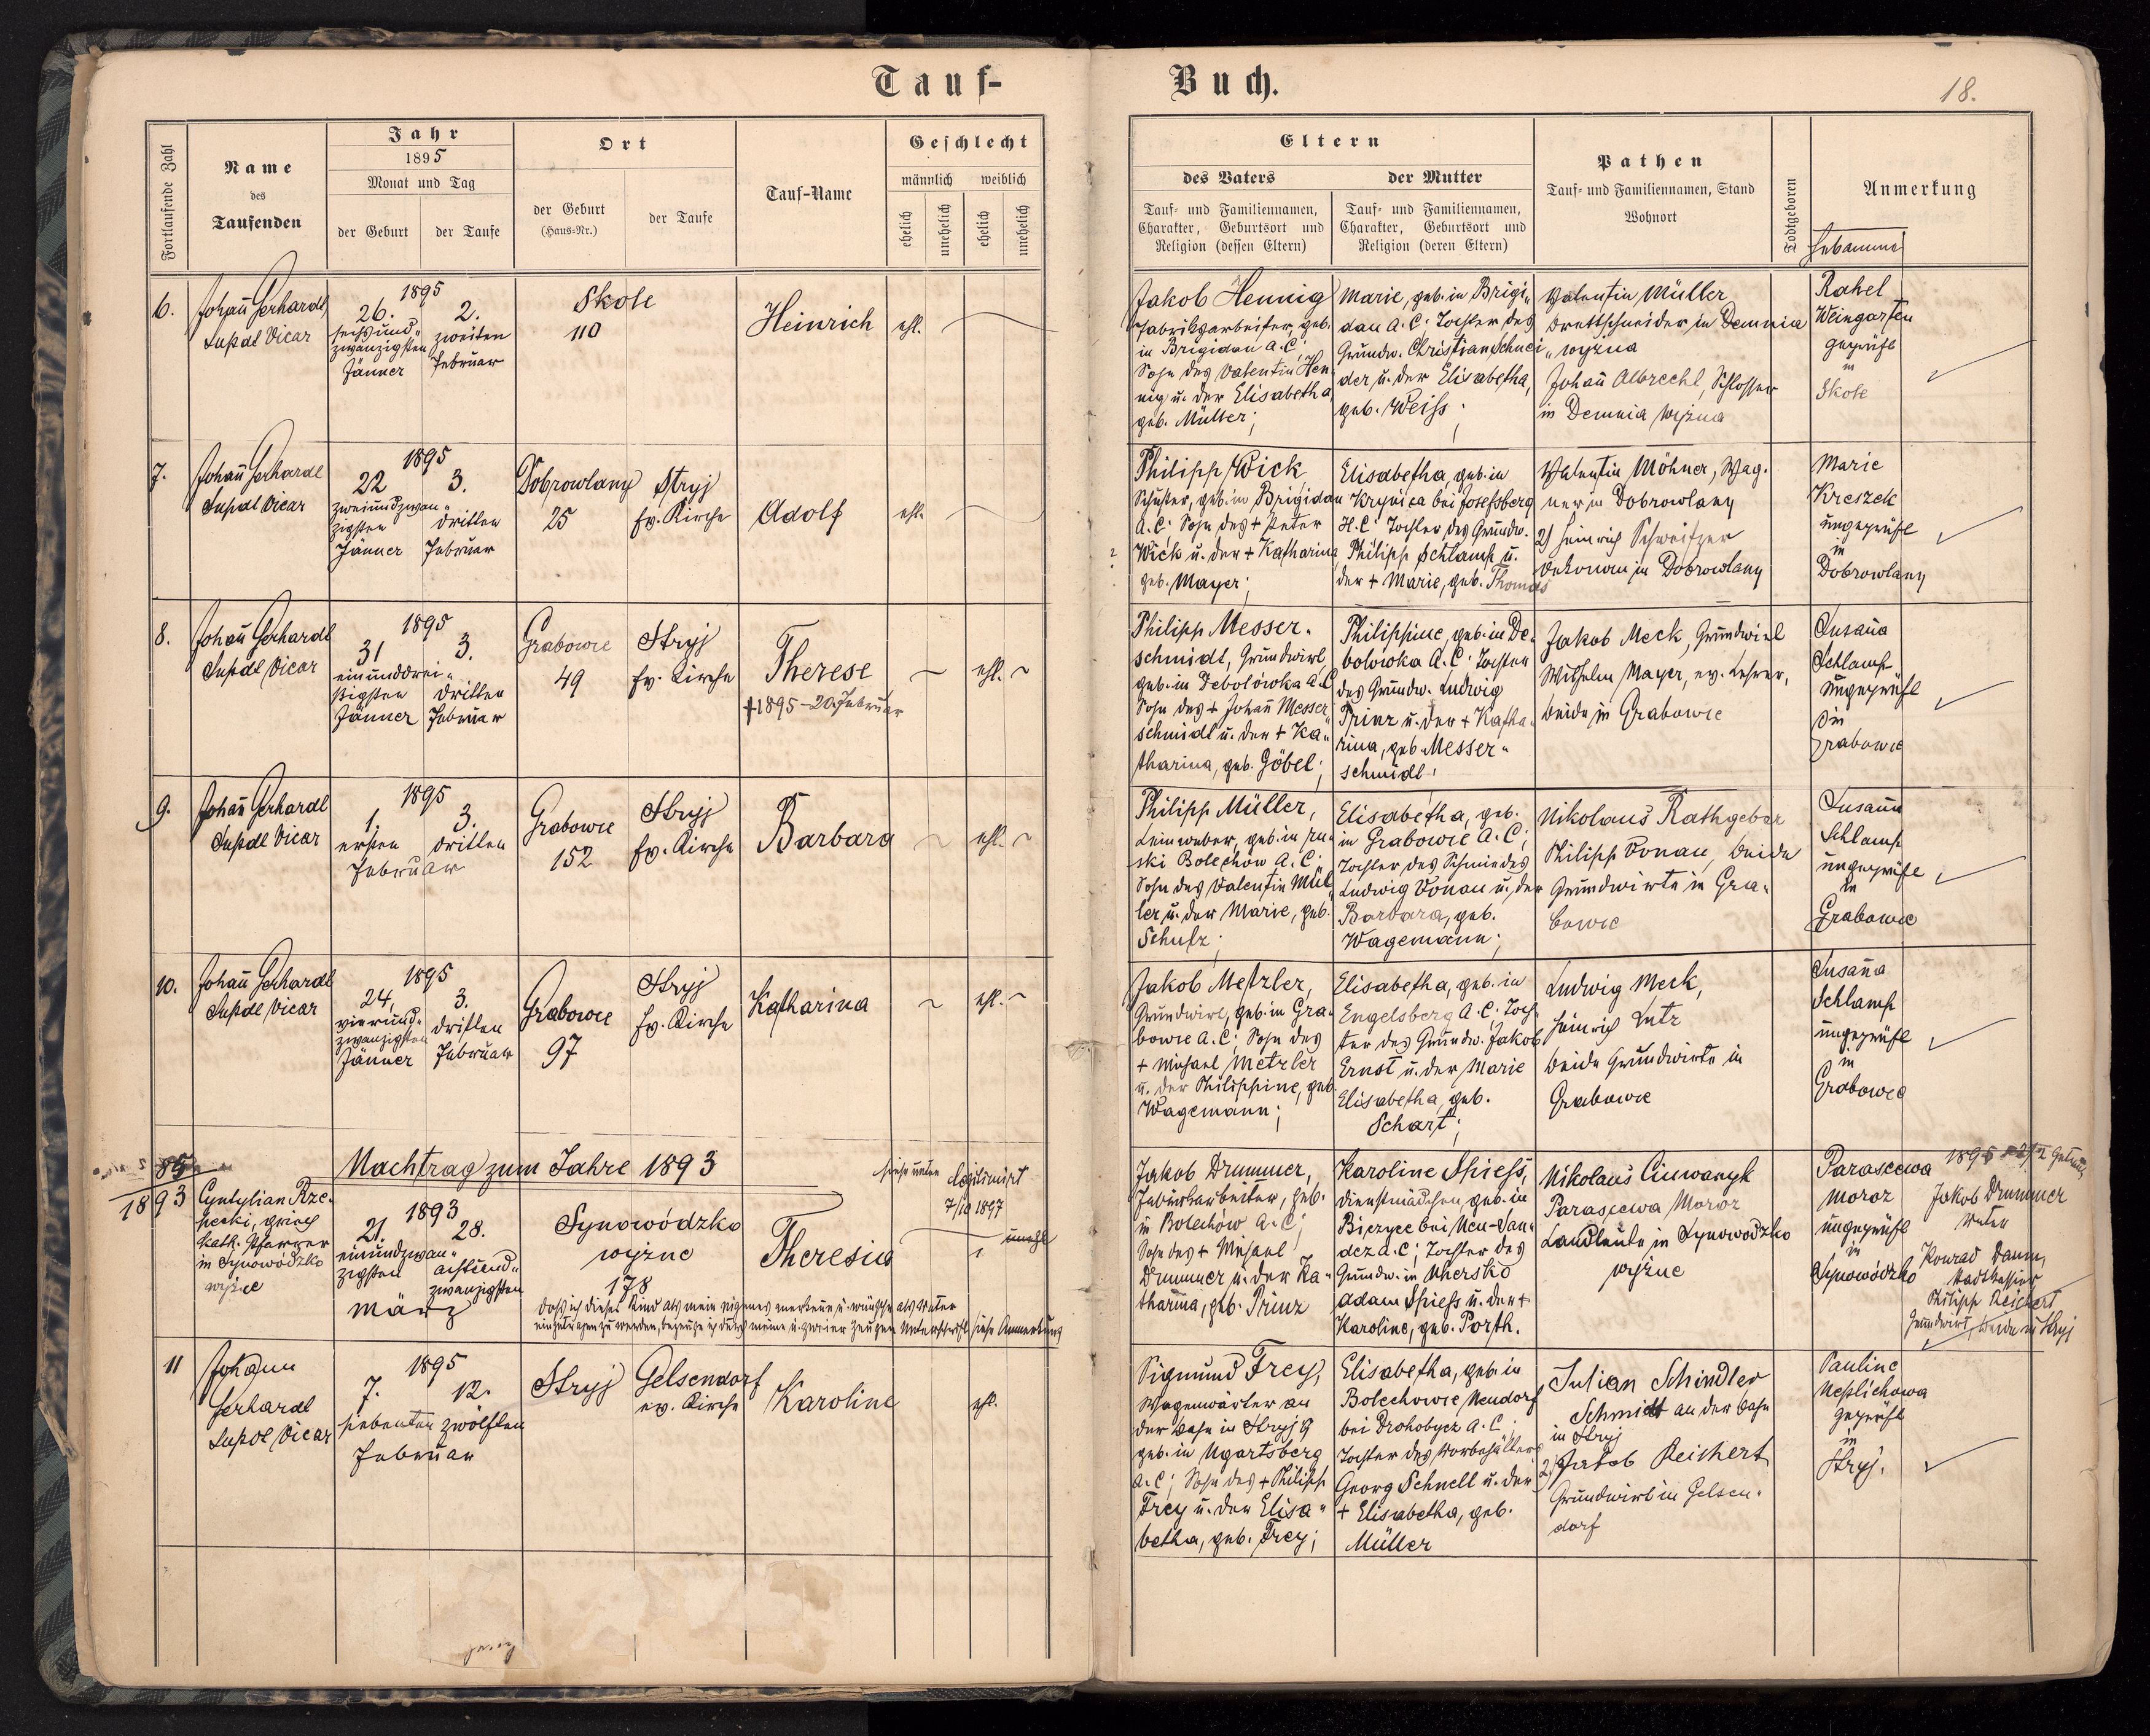 Tauf-
Buch.
18.
Fortlaufende Zahl
Name
des
Taufenden
Jahr
1895
Monat und Tag
der Geburt
der Taufe
Ort
der Geburt
(Haus-Nr.)
der Taufe
Tauf-Name
Geschlecht
männlich
weiblich
ehelich
unehelich
ehelich
unehelich
Eltern
des Vaters
Tauf- und Familiennamen,
Charakter, Geburtsort und
Religion (dessen Eltern)
der Mutter
Tauf- und Familiennamen,
Charakter, Geburtsort und
Religion (deren Eltern)
Pathen
Tauf- und Familiennamen, Stand
Wohnort
Todtgeboren
Anmerkung
Hebamme
6.
Johañ Gerhardt,
Supdt Vicar
1895
26.
sechsund„
zwanzigsten
Jänner
2.
zweiten
Februar
Skole
110
Heinrich
ehl.
Jakob Hennig
Fabriksarbeiter, geb.
in Brigidau A.C;
Sohn des Valentin Hen„
nig u. der Elisabetha
geb. Müller;
Marie, geb. in Brigi„
dau A.C; Tochter des
Grundw. Christian Schnei„
der u. der Elisabetha,
geb. Weiss;
Valentin Müller
Brettschneider in Demnia
wyżna
Johañ Albrecht, Schlosser
in Demnia wyżna
Rahel
Weingarten
geprüft
in
Skole
7.
Johañ Gerhardt
Supdt Vicar
1895
22
zweiundzwan„
zigsten
Jänner
3.
dritten
Februar
Dobrowlany
25
Stryj
ev. Kirche
Adolf
ehl.
Philipp Wick
Schuster, geb. in Brigidau
A.C; Sohn des + Peter
Wick u. der + Katharina
geb. Mayer;
Elisabetha, geb. in
Krynica bei Josefsberg
H.C; Tochter des Grundw.
Philipp Schlamp u.
der + Marie, geb. Thomas
Valentin Möhner, Wag„
ner in Dobrowlany
2) Heinrich Schweitzer
Oekonom in Dobrowlany
Marie
Kreszek
ungeprüft
in
Dobrowlany
8.
Johañ Gerhardt
Supdt Vicar
1895
31
einunddrei„
ßigsten
Jänner
3.
dritten
Februar
Grabowie
49
Stryj
ev. Kirche
Therese
+1895 – 20. Februar
ehl.
Philipp Messer„
schmidt, Grundwirt
geb. in Debolówka A.C
Sohn des + Johañ Messer„
schmidt u. der + Ka„
tharina, geb. Göbel;
Philippine, geb. in De„
bolowka A.C; Tochter
des Grundw. Ludwig
Prinz u. der + Katha„
rina, geb. Messer„
schmidt;
Jakob Meck, Grundwirt
Wilhelm Mayer, ev. Lehrer,
beide in Grabowie
Susaña
Schlamp
ungeprüft
in
Grabowie
9.
Johañ Gerhardt
Supdt Vicar
1895
1.
ersten
3.
dritten
Februar
Grabowie
152
Stryj
ev. Kirche
Barbara
ehl.
Philipp Müller,
Leinweber, geb. in ru„
ski Bolechow A.C;
Sohn des Valentin Mül„
ler u. der Marie, geb.
Schulz;
Elisabetha, geb.
in Grabowie A.C;
Tochter des Schmiedes
Ludwig Donau u. der
Barbara, geb.
Wagemann;
Nikolaus Rathgeber
Philipp Donau, beide
Grundwirte in Gra„
bowie
Susaña
Schlamp
ungeprüft
in
Grabowie
10.
Johañ Gerhardt
Supdt Vicar
1895
24.
vierund„
zwanzigsten
Jänner
3.
dritten
Februar
Grabowie
97
Stryj
ev. Kirche
Katharina
ehl.
Jakob Metzler,
Grundwirt, geb. in Gra„
bowie A.C; Sohn des
+ Michael Metzler
u. der Philippine, geb.
Wagemann;
Elisabetha, geb. in
Engelsberg A.C; Toch„
ter des Grundw. Jakob
Ernst u. der Marie
Elisabetha, geb.
Schart;
Ludwig Meck,
Heinrich Lutz
beide Grundwirte in
Grabowie
Susaña
Schlamp
ungeprüft
in
Grabowie
85
1893
Nachtrag zum Jahre 1893
siehe unten
legitimirt
7/10 1897
Cyntylian Rze„
pecki, griech
kath. Pfarrer
in Synowódzko
wyżne
1893
21.
einundzwan„
zigsten
28.
achtund„
zwanzigsten
März
Synowódzko
wyżne
178
Theresia
1
unehl
Daß ich dieses Kind als mein eigenes anerkenne u. wünsche als Vater
eingetragen zu werden, bezeuge ich durch meine u. zweier Zeugen Unterschrift
siehe Anmerkung
Jakob Drummer,
Fabriksarbeiter, geb.
in Bolechów A.C;
Sohn des + Michael
Drummer u. der Ka„
tharina, geb. Prinz
Karoline Spiess,
Dienstmädchen, geb. in
Biczyce bei Neu-San„
dez A.C; Tochter des
Grundw. in Uhersko
Adam Spiess u. der +
Karoline, geb. Porth.
Nikolaus Ciuwanyk
Parascewa Moroz
Landleute in Synowódzko
wyżne
Parascewa
Moroz
ungeprüft
in
Synowódzko
Jakob Drummer
Vater
Konrad Daum,
Stadtkassier
Philipp Reichert
Grundwirt, beide in Stryj
11
Johann
Gerhardt
Supdt Vicar
1895
7.
siebenten
12.
zwölften
Februar
Stryj
Gelsendorf
ev. Kirche
Karoline
ehl.
Sigmund Frey,
Wagenwärter an
der Bahn in Stryj
geb. in Ugartsberg
A.C; Sohn des + Philipp
Frey u. der Elisa„
betha, geb. Frey;
Elisabetha, geb. in
Bolechowie Neudorf
bei Drohobycz A.C;
Tochter des
Georg Schnell u. der
+ Elisabetha, geb.
Müller
Julian Schindler
Schmidt an der Bahn
in Stryj
2) Jakob Reichert
Grundwirt in Gelsen„
dorf
Pauline
geprüft
in
Stryj.